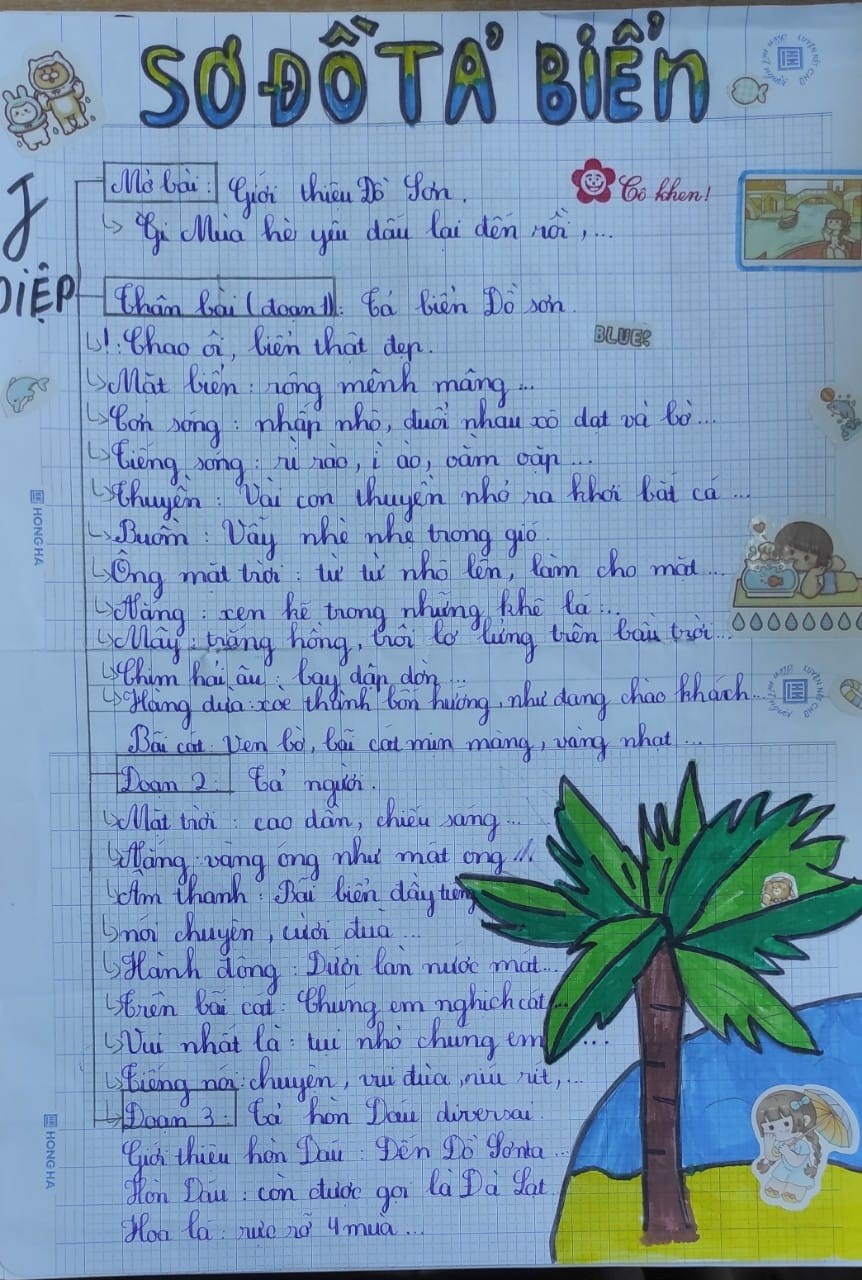 SƠ ĐỒ TẢ BIỂN
Mở bài: Giới thiệu Đồ Sơn.
Cô khen!
↳ Gi Mùa hè yêu dấu lại đến rồi,...
J
DIỆP
Thân bài (đoạn 1): Tả biển Đồ sơn.
BLUE:
↳!: Chao ôi, biển thật đẹp.
↳ Mặt biển: rộng mênh mông...
↳ Con sóng: nhấp nhô, đuổi nhau xô dạt và bờ...
↳ Tiếng sóng: rì rào, ì ào, oằm oặp...
↳ Thuyền: Vài con thuyền nhỏ ra khơi bắt cá...
↳ Buồm: Vẫy nhè nhẹ trong gió.
↳ Ông mặt trời: từ từ nhô lên, làm cho mặt...
↳ Nắng: xen kẽ trong những khẽ lá...
↳ Mây: trắng hồng, trôi lơ lửng trên bầu trời...
↳ Chim hải âu: bay dập dờn...
↳ Hàng dừa: xòe thành bốn hướng, như đang chào khách...
Bãi cát: Ven bờ, bãi cát mịn màng, vàng nhạt...
Đoạn 2: Tả người.
↳ Mặt trời: cao dần, chiếu sáng...
↳ Nắng: vàng óng như mật ong...
↳ Âm thanh: Bãi biển đầy tiếng
↳ nói chuyện, cười đùa...
↳ Hành động: Dưới làn nước mát...
↳ Trên bãi cát: Chúng em nghịch cát...
↳ Vui nhất là: tụi nhỏ chúng em...
↳ Tiếng nói chuyện, vui đùa, ríu rít,...
Đoạn 3: Tả hòn Dấu diversai.
Giới thiệu hòn Dấu: Đến Đồ Sơn ta...
Hòn Dấu: còn được gọi là Đà Lạt
Hoa lá: rực rỡ 4 mùa...
HONG HA
HONG HA